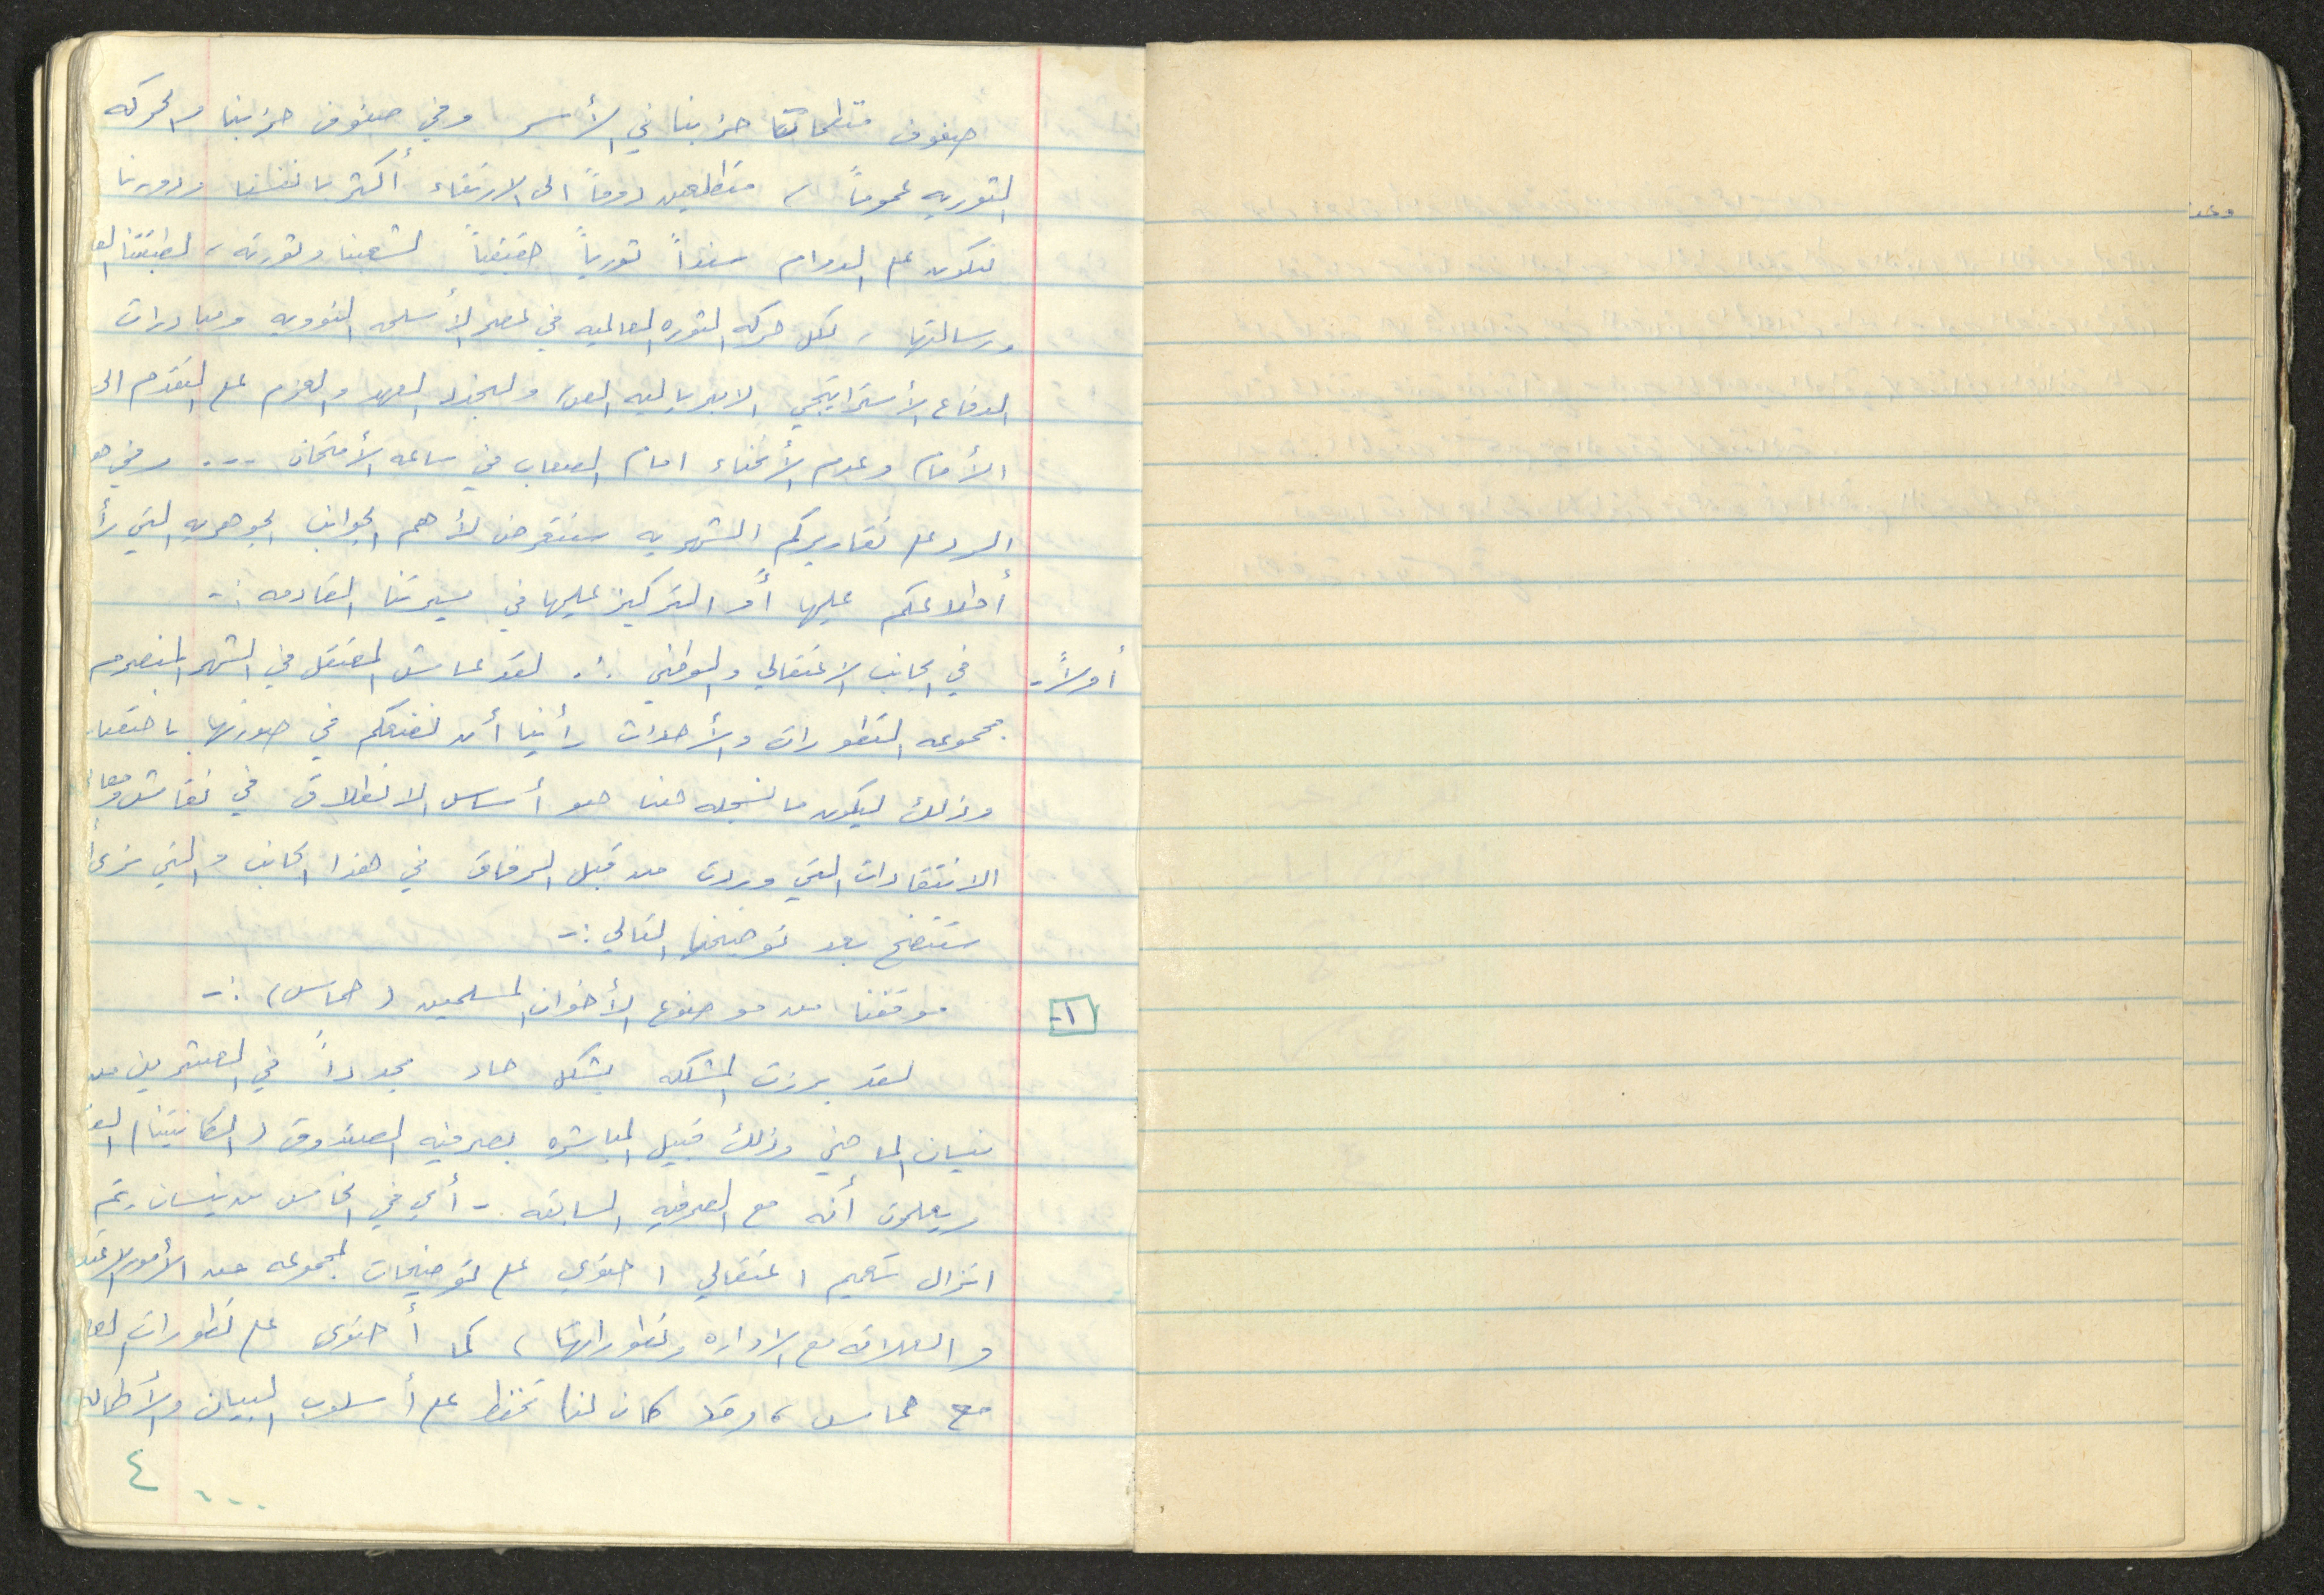 صفوف منظماتنا حزبنا في الأسر وفي صفوف حزبنا والحركه
الثوريه عموماً، متطلعين دوماً الى الارتقاء أكثر بانفسنا ودورنا
لنكون على الدوام سنداً ثورياً حقيقياً لشعبنا وثورته، لطبقتنا
ورسالتها، لكل حركه الثوره العالميه في عصر الأسلحه النوويه ومبادرات
الدفاع الأستراتيجي الامبرياليه ولنجدد العهد والعزم على التقدم الى
الأمام وعدم الأنحناء امام الصعاب في ساعه الأمتحان ... وفي
الرد على تقاريركم الشهريه سنتعرض لأهم الجوانب الجوهريه التي
أطلاعكم عليها أو التركيز عليها في مسيرتنا القادمه :-
أولاً- في الجانب الاعتقالي والوطني :- لقد عايش المعتقل في الشهر المنصرم
مجموعه التطورات والأحداث رأينا أن نضعكم في صورتها باختصار
وذلك ليكون ما نسجله هنا هو أساس الانطلاق في نقاش
الانتقادات التي وردت من قبل الرفاق في هذا الجانب والتي نرى
ستتضح بعد توضيحنا التالي :-
١- موقفنا من موضوع الأخوان المسلمين (حماس) :-
لقد برزت المشكله بشكل حاد مجدداً في العشرين من
نيسان الماضي وذلك قبيل المباشره بصرفيه الصندوق (الكانتينا)
يعلمون أنه مع الصرفيه السابقه - أي في الخامس من نيسان تم
انزال تعميم اعتقالي احتوى على توضيحات لمجموعه من الأمور
والعلاقه مع الاداره وتطوراتها، كما أحتوى على تطورات
مع حماس، وقد كان لنا تحفظ على أسلوب البيان
٤ ...